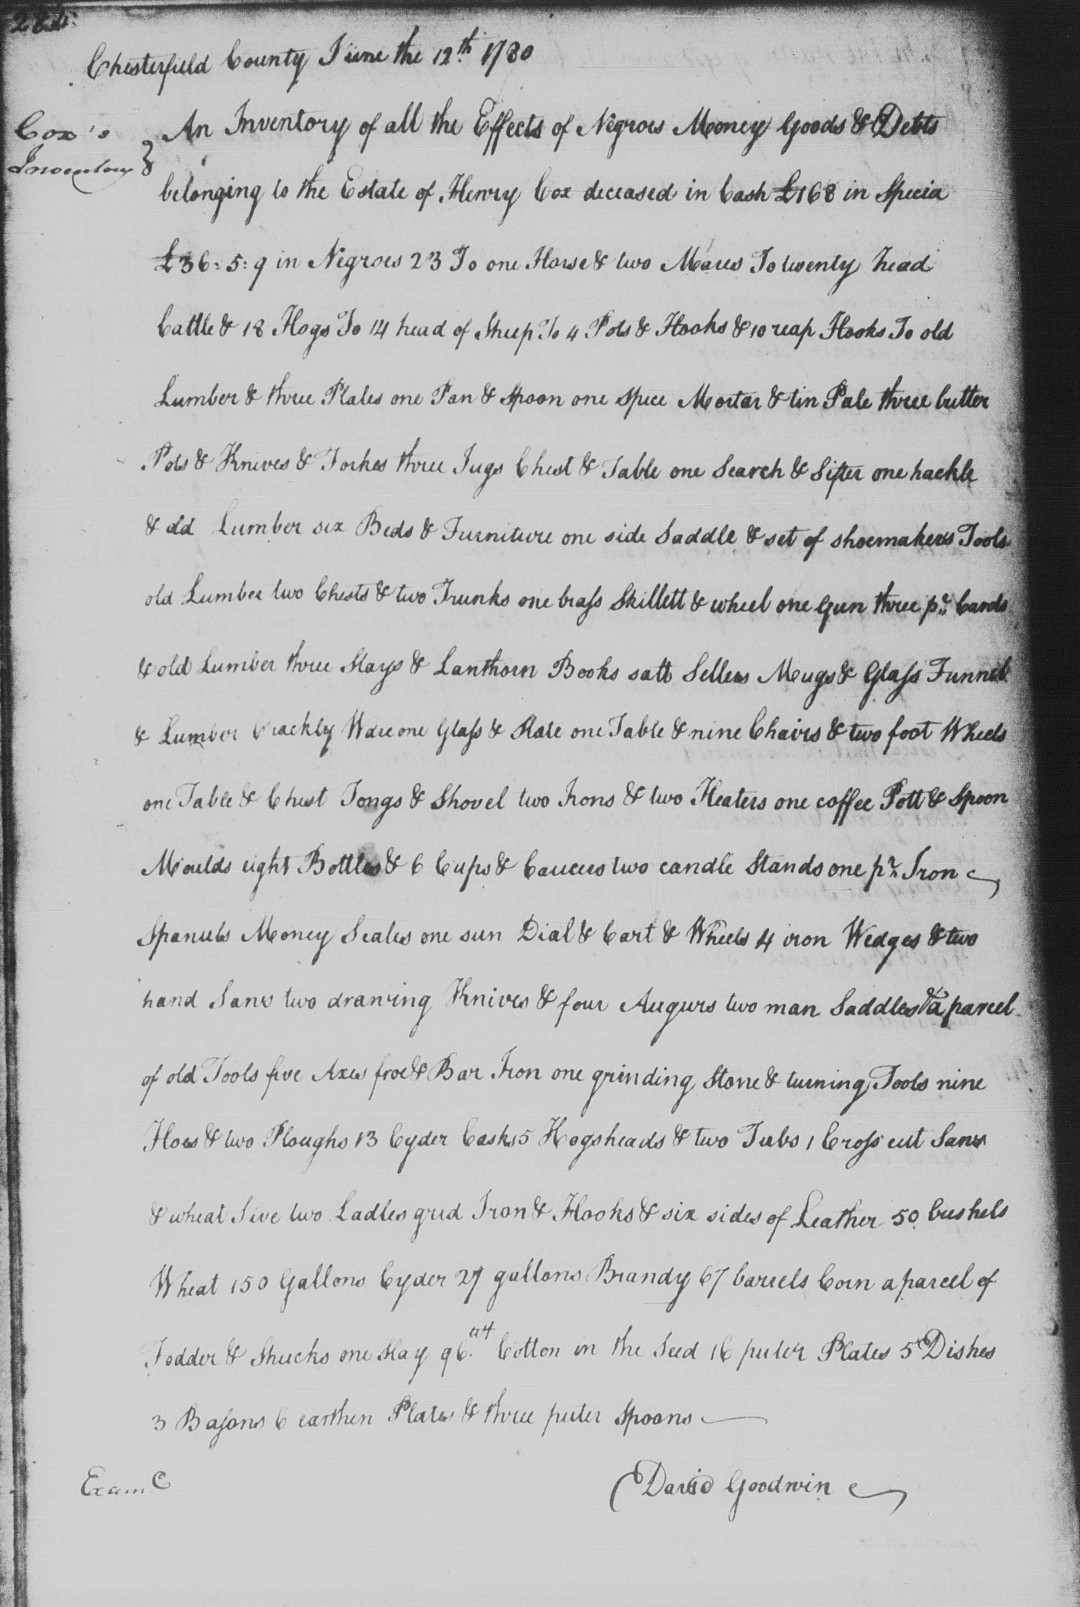 Chesterfield County June the 12th 1780
Cox's
Inventory }
An Inventory of all the Effects of Negroes Money Goods & Debts
belonging to the Estate of Henry Cox deceased in Cash £168 in Specia
£36:5:9 in Negroes 23 To one Horse & two Mares To twenty head
Cattle & 18 Hogs To 14 head of Sheep To 4 Pots & Hooks & 10 reap Hooks To old
Lumber & three Plates one Pan & Spoon one Spice Mortar & tin Pale three butter
Pots & Knives & Forkes three Jugs Chest & Table one Search & Sifter one hackle
& old Lumber six Beds & Furniture one side Saddle & set of shoemakers Tools
old Lumber two Chests & two Trunks one brass Skillett & wheel one Gun three pr. Cards
& old Lumber three Slays & Lanthorn Books salt Sellers Mugs & Glass Funnel
& Lumber Crackly Ware one Glass & Slate one Table & nine Chairs & two foot Wheels
one Table & Chest Tongs & Shovel two Irons & two Heaters one coffee Pott & Spoon
Moulds eight Bottles & 6 Cups & Caucers two candle Stands one pr. Iron
Spanuls Money Scales one sun Dial & Cart & Wheels 4 iron Wedges & two
hand Saws two drawing Knives & four Augurs two man Saddles & a parcel
of old Tools five Axes froe & Bar Iron one grinding Stone & turning Tools nine
Hoes & two Ploughs 13 Cyder Casks 5 Hogsheads & two Tubs 1 Cross cut Saw
& wheat Sive two Ladles grid Iron & Hooks & six sides of Leather 50 bushels
Wheat 150 Gallons Cyder 27 gallons Brandy 67 barrels Corn a parcel of
Fodder & Shucks one Slay 96 wt Cotton in the Seed 16 puter Plates 5 Dishes
3 Basons 6 earthen Plates & three puter Spoons
Exam
David Goodwin